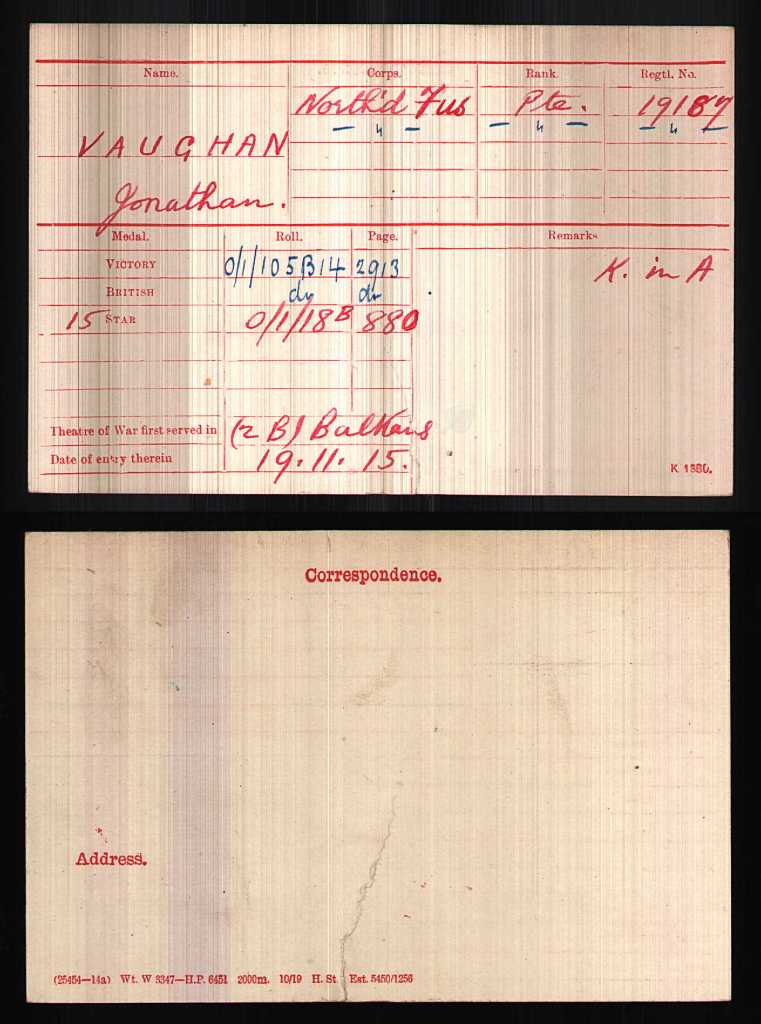 Name. Corps. Rank. Regtl. No.
North'd Fus Pte. 19187
— " — — " — — " —
VAUGHAN
Jonathan.
Medal. Roll. Page. Remarks
VICTORY 0/1/105B14 2913 K. in A
BRITISH do do
15 STAR 0/1/18B 880
Theatre of War first served in (2 B) Balkans
Date of entry therein 19.11.15.
K 1380.
Correspondence.
Address.
(25454—14a) Wt. W 3347—H.P. 6451 2000m. 10/19 H. St Est. 5450/1256